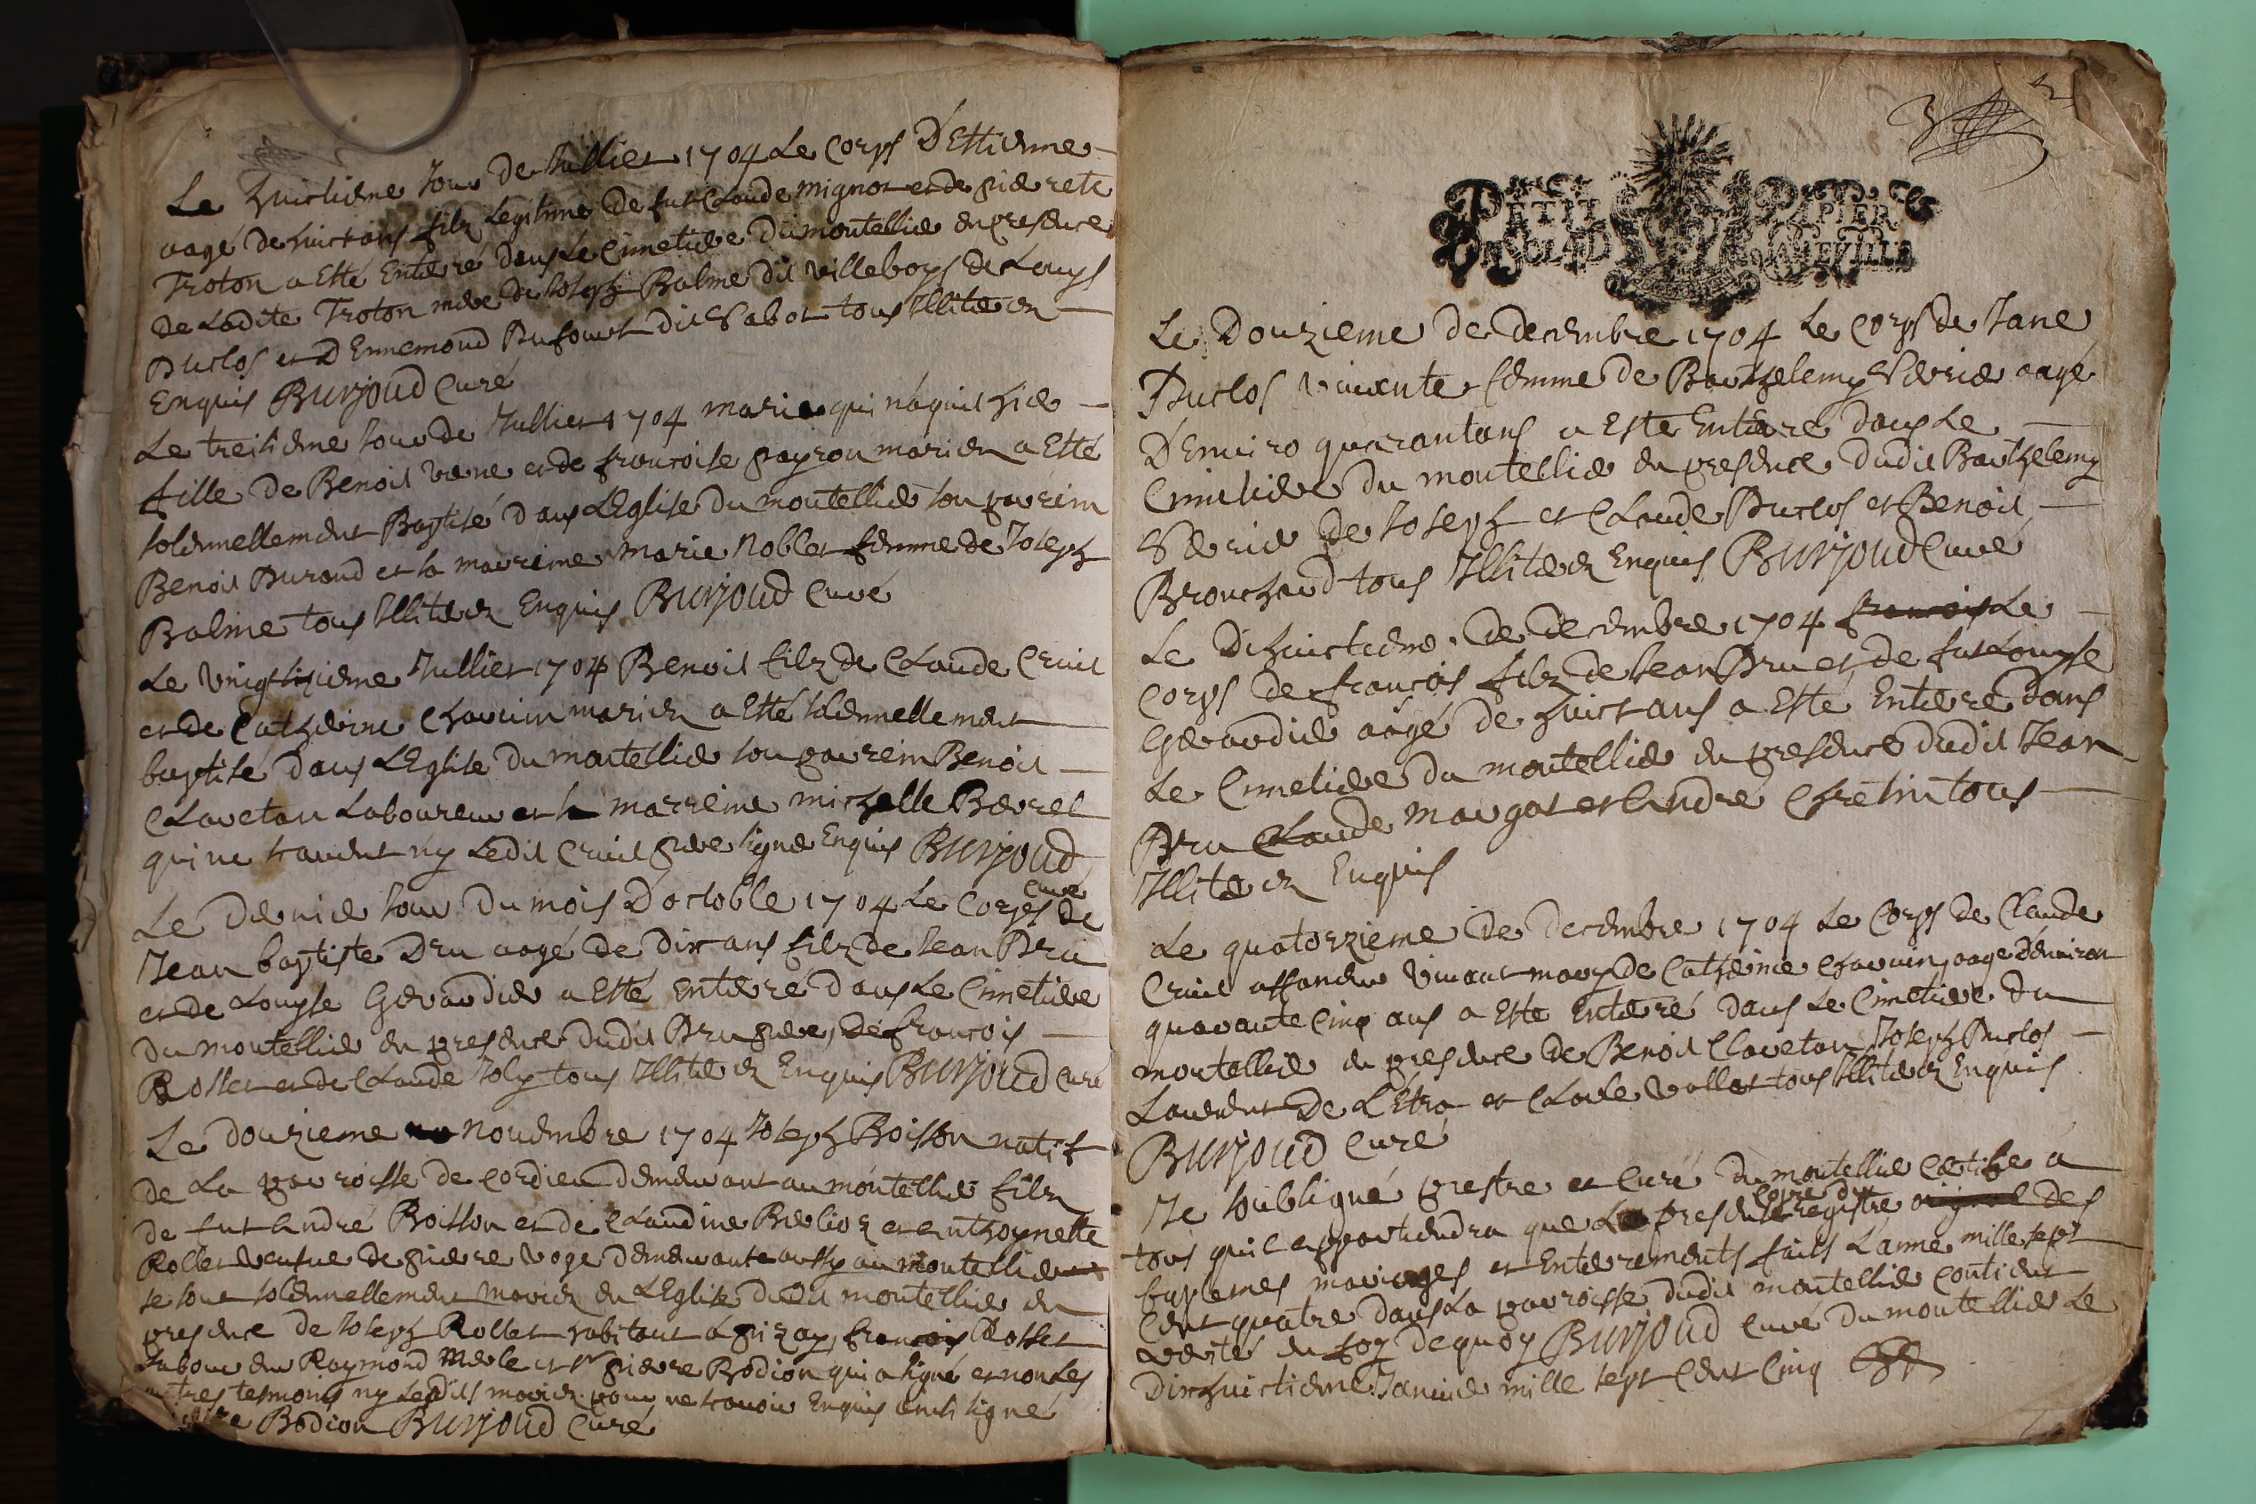 Le huictieme Jour de Jullier 1704 Le Corps D'Ettienne
aagé de huict ans filz Legitime De fut Claude mignot et de pierrete
Troton a Esté Enterré dans Le Cimetiere du montellier en presence
de Ladite Troton mere de Joseph Balme dit Villeboys de Louys
Duclos et D'Ennemond Dufourt dit Sabot tous Illiterez
Enquis Burjoud Curé
Le treisieme Jour de Jullier 1704 marie qui náquit hier
fille de Benoit et de francoise payron mariez a Esté
solennellement Baptisé dans L'Eglise du montellier son parrein
Benoit Durand et la marreine Marie Noblet femme de Joseph
Balme tous Illiterez Enquis Burjoud Curé
Le Vingt sixieme Jullier 1704 Benoit filz de Claude Cruit
et de Catherine Chavuin mariez a Esté solennellement
baptisé dans L'Eglise du montellier son parrein Benoit
Claveton Laboureur et la marreine michelle Borrel
qui ne scavent ny Ledit Cruit pere signer Enquis Burjoud
Curé
Le Dernier Jour Du mois D'octoble 1704 Le Corps de
Jean baptiste Dru aagé de Dix ans filz de Jean Dru
et de Louyse Gerardier a Esté enterré dans Le Cimetiere
Du montellier en presence dudit Dru pere, de francois
Rosset et de Claude Joly tous Illiterez Enquis Burjoud Curé
Le douzieme novembre 1704 Joseph Boisson natif
de La parroisse de Cordieu demeurant au montellier filz
de fut André Boisson et de Claudine et anthoynette
Rollet veufve de pierre Voge demeurante aussy au montellier
se sont solennellement mariez en L'Eglise dudit montellier en
presence de Joseph Rollet habitant à pizay, francois Rosset
Laboureur Raymond Merle et Sr pierre Bodion qui a signé et non Les
autres temoins ny Lesdits mariez pour ne scavoir Enquis ainsi signé
Bodion Burjoud Curé
PETIT PAPIER
Le Douzieme de decembre 1704 Le Corps de Jane
Duclos vivante femme de Barthelemy Verrier aagé
D'Enviro quarantans a Esté Enterré dans Le
Cimetiere du montellier en presence dudit Barthelemy
Verrier de Joseph et Claude Duclos et Benoit
Brouchard tous Illiterez Enquis Burjoud Curé
Le Dihuictieme de decembre 1704 francois Le
Corps de francois filz de Jean Dru et de fut Louyse
Gerardier aagé de huict ans a Esté Enterré dans
Le Cimetiere du montellier en presence dudit Jean
Dru Claude Margot et André Chretin tous
Illiterez Enquis
Le quatorzieme de decembre 1704 Le Corps de Claude
Cruit affaneur vivant mary de Catherine Chavuin, aagé d'environ
quarante Cinq ans a Esté Enterré dans Le Cimetiere du
montellier en presence de Benoit Claveton, Joseph Duclos
Laurent De L'Etra et Claude Vallet tous Illiterez Enquis
Burjoud Curé
Je soubsigné prestre et Curé du montellier Certifie à
tous qu'il appartiendra que Le present Copie du registre original des
baptemes mariages et Enterrements faits L'anné mille sept
Cent quatre dans La parroisse dudit montellier Contient
verité en foy dequoy Burjoud Curé du montellier Le
Dixhuictieme Janvier mille sept Cent Cinq